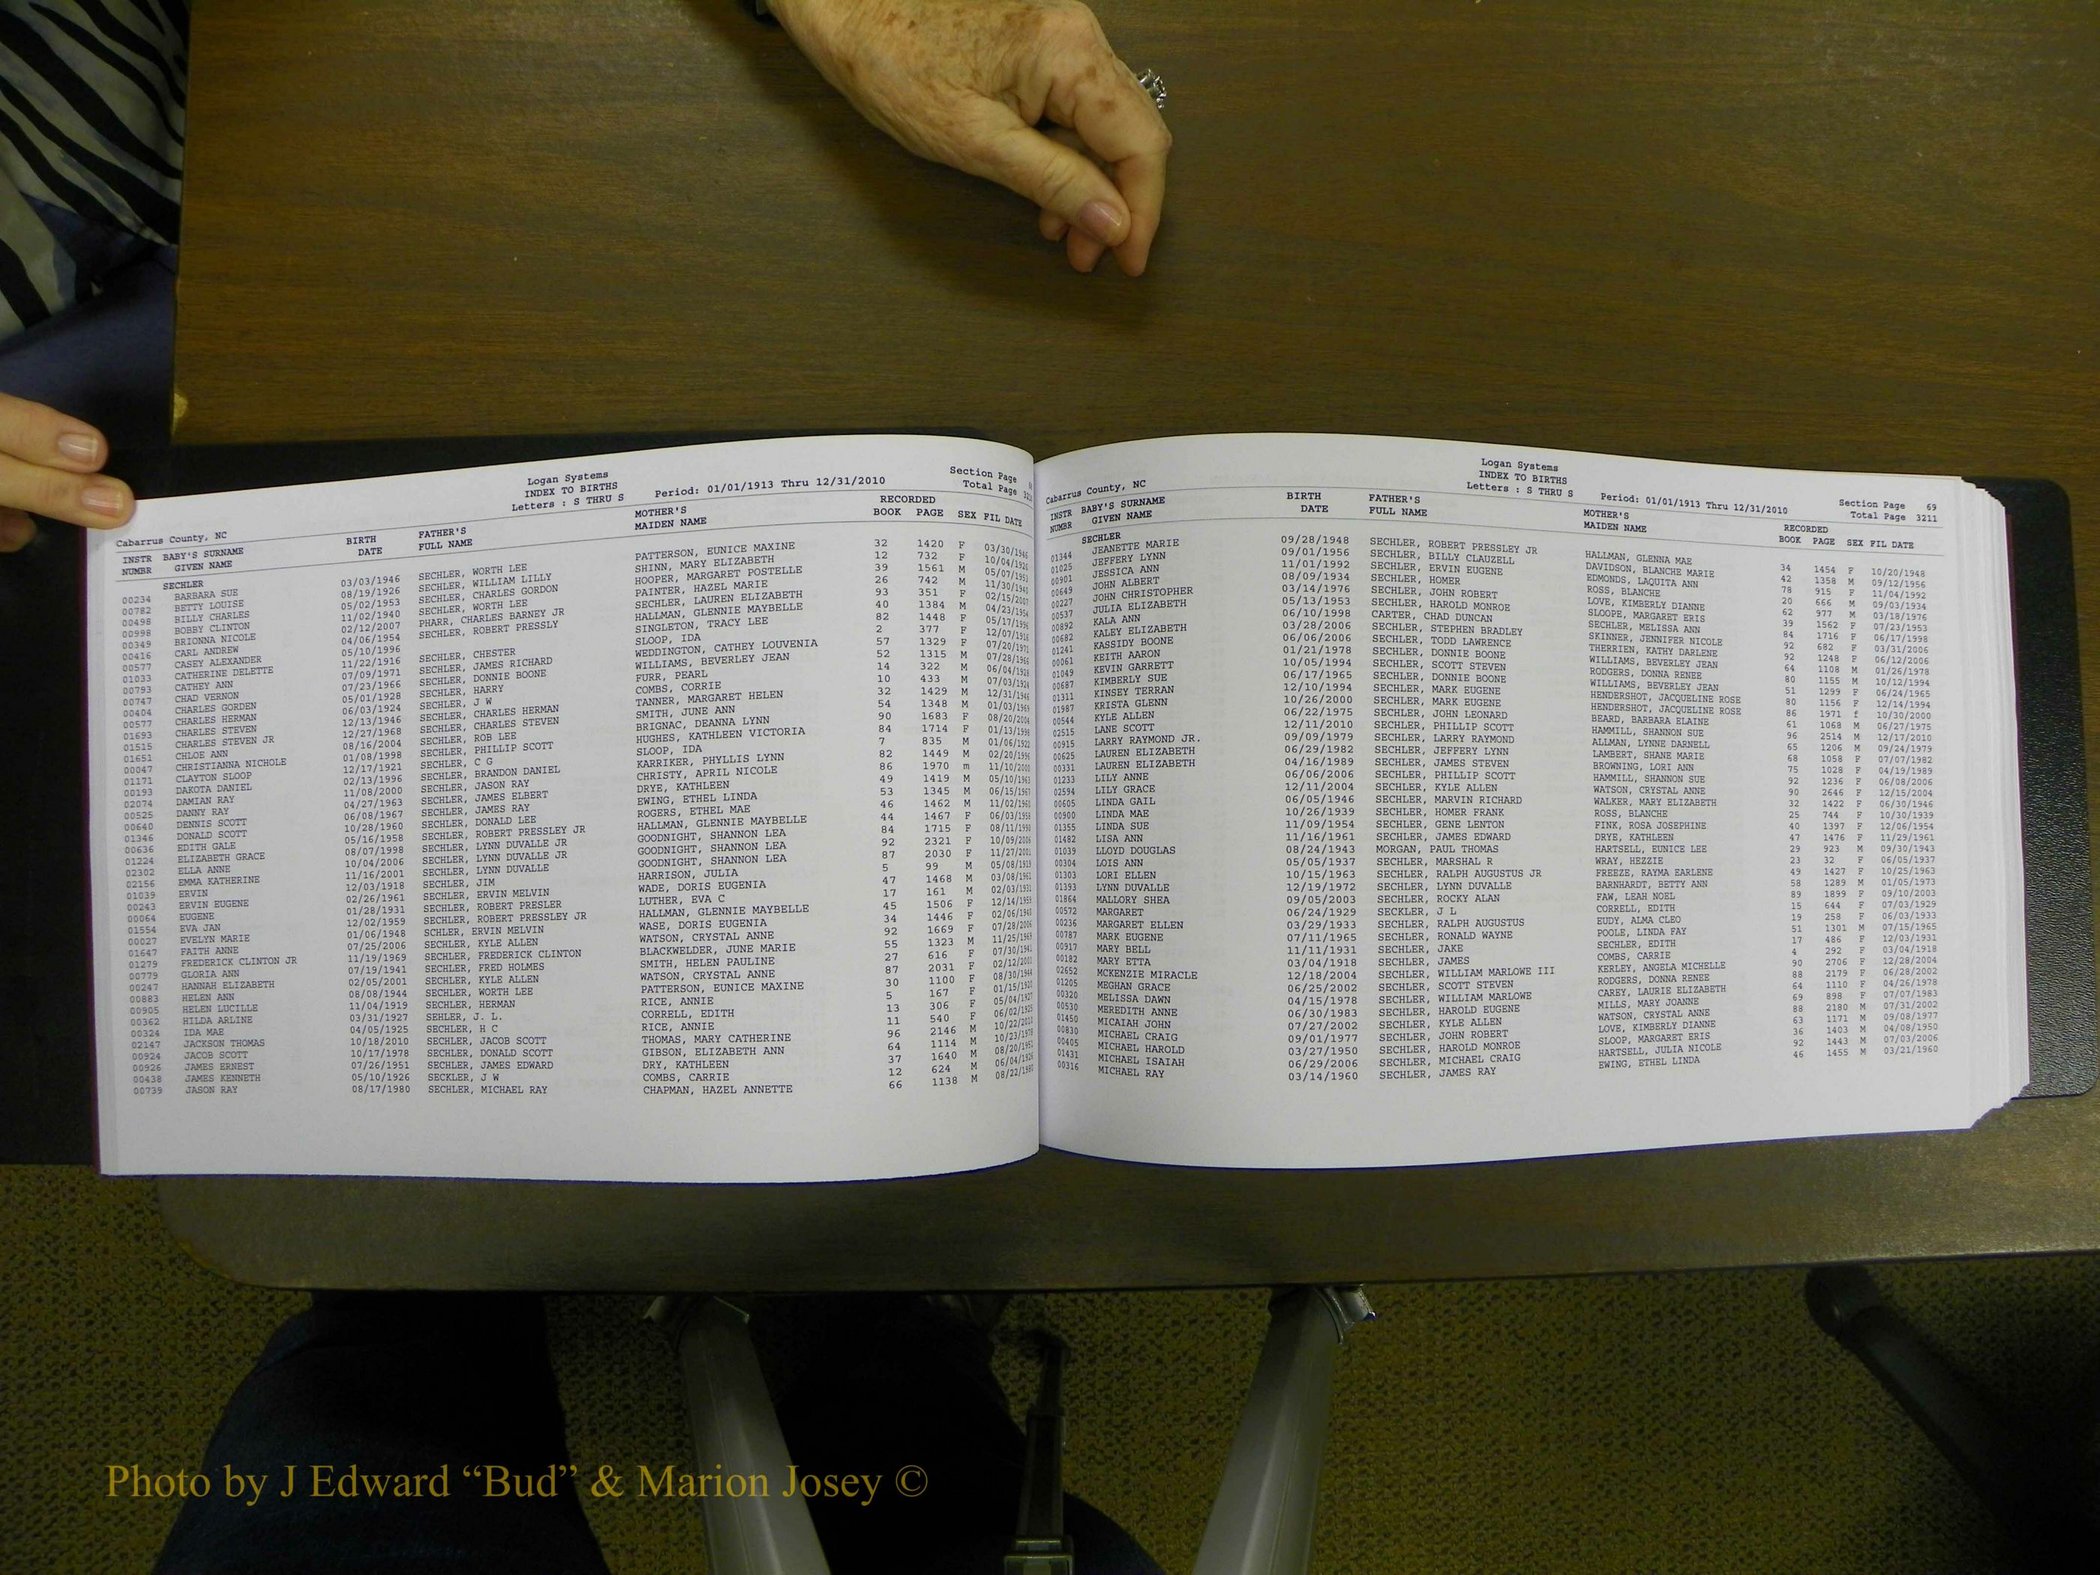 Logan Systems
INDEX TO BIRTHS
Letters : S THRU S
Cabarrus County, NC Period: 01/01/1913 Thru 12/31/2010 Section Page
Total Page
INSTR NUMBR BABY'S SURNAME GIVEN NAME BIRTH DATE FATHER'S FULL NAME MOTHER'S MAIDEN NAME RECORDED BOOK PAGE SEX FIL DATE
SECHLER
00234 BARBARA SUE 03/03/1946 SECHLER, WORTH LEE PATTERSON, EUNICE MAXINE 32 1420 F 03/30/1946
00782 BETTY LOUISE 08/19/1926 SECHLER, WILLIAM LILLY SHINN, MARY ELIZABETH 12 732 F 10/04/1926
00498 BILLY CHARLES 05/02/1953 SECHLER, CHARLES GORDON HOOPER, MARGARET POSTELLE 39 1561 M 05/07/1953
00998 BOBBY CLINTON 11/02/1940 SECHLER, WORTH LEE PAINTER, HAZEL MARIE 26 742 M 11/30/1940
00349 BRIONNA NICOLE 02/12/2007 PHARR, CHARLES BARNEY JR SECHLER, LAUREN ELIZABETH 93 351 F 02/15/2007
00416 CARL ANDREW 04/06/1954 SECHLER, ROBERT PRESSLY HALLMAN, GLENNIE MAYBELLE 40 1384 M 04/23/1954
00577 CASEY ALEXANDER 05/10/1996 SINGLETON, TRACY LEE 82 1448 F 05/17/1996
01033 CATHERINE DELETTE 11/22/1916 SECHLER, CHESTER SLOOP, IDA 2 377 F
00793 CATHEY ANN 07/09/1971 SECHLER, JAMES RICHARD WEDDINGTON, CATHEY LOUVENIA 57 1329 F 07/20/1971
00747 CHAD VERNON 07/23/1966 SECHLER, DONNIE BOONE WILLIAMS, BEVERLEY JEAN 52 1315 M 07/28/1966
00404 CHARLES GORDEN 05/01/1928 SECHLER, HARRY FURR, PEARL 14 322 M 06/04/1928
00577 CHARLES HERMAN 06/03/1924 SECHLER, J W COMBS, CORRIE 10 433 M 07/03/1924
01693 CHARLES STEVEN 12/13/1946 SECHLER, CHARLES HERMAN TANNER, MARGARET HELEN 32 1429 M 12/31/1946
01515 CHARLES STEVEN JR 12/27/1968 SECHLER, CHARLES STEVEN SMITH, JUNE ANN 54 1348 M 01/03/1969
01651 CHLOE ANN 08/16/2004 SECHLER, ROB LEE BRIGNAC, DEANNA LYNN 90 1683 F 08/20/2004
00047 CHRISTIANNA NICHOLE 01/08/1998 SECHLER, PHILLIP SCOTT HUGHES, KATHLEEN VICTORIA 84 1714 F 01/13/1998
01171 CLAYTON SLOOP 12/17/1921 SECHLER, C G SLOOP, IDA 7 835 M 01/06/1922
00193 DAKOTA DANIEL 02/13/1996 SECHLER, BRANDON DANIEL KARRIKER, PHYLLIS LYNN 82 1449 M 02/20/1996
02074 DAMIAN RAY 11/08/2000 SECHLER, JASON RAY CHRISTY, APRIL NICOLE 86 1970 m 11/10/2000
00525 DANNY RAY 04/27/1963 SECHLER, JAMES ELBERT DRYE, KATHLEEN 49 1419 M 05/10/1963
00640 DENNIS SCOTT 06/08/1967 SECHLER, JAMES RAY EWING, ETHEL LINDA 53 1345 M 06/15/1967
01346 DONALD SCOTT 10/28/1960 SECHLER, DONALD LEE ROGERS, ETHEL MAE 46 1462 M 11/02/1960
00636 EDITH GALE 05/16/1958 SECHLER, ROBERT PRESSLEY JR HALLMAN, GLENNIE MAYBELLE 44 1467 F 06/03/1958
01224 ELIZABETH GRACE 08/07/1998 SECHLER, LYNN DUVALLE JR GOODNIGHT, SHANNON LEA 84 1715 F 08/11/1998
02302 ELLA ANNE 10/04/2006 SECHLER, LYNN DUVALLE JR GOODNIGHT, SHANNON LEA 92 2321 F 10/09/2006
02156 EMMA KATHERINE 11/16/2001 SECHLER, LYNN DUVALLE GOODNIGHT, SHANNON LEA 87 2030 F 11/27/2001
01039 ERVIN 12/03/1918 SECHLER, JIM HARRISON, JULIA 5 99 M 05/08/1919
00243 ERVIN EUGENE 02/26/1961 SECHLER, ERVIN MELVIN WADE, DORIS EUGENIA 47 1468 M 03/08/1961
00064 EUGENE 01/28/1931 SECHLER, ROBERT PRESLER LUTHER, EVA C 17 161 M 02/03/1931
01554 EVA JAN 12/02/1959 SECHLER, ROBERT PRESSLEY JR HALLMAN, GLENNIE MAYBELLE 45 1506 F 12/14/1959
00027 EVELYN MARIE 01/06/1948 SCHLER, ERVIN MELVIN WASE, DORIS EUGENIA 34 1446 F
01647 FAITH ANNE 07/25/2006 SECHLER, KYLE ALLEN WATSON, CRYSTAL ANNE 92 1669 F 07/28/2006
01279 FREDERICK CLINTON JR 11/19/1969 SECHLER, FREDERICK CLINTON BLACKWELDER, JUNE MARIE 55 1323 M 11/25/1969
00779 GLORIA ANN 07/19/1941 SECHLER, FRED HOLMES SMITH, HELEN PAULINE 27 616 F 07/30/1941
00247 HANNAH ELIZABETH 02/05/2001 SECHLER, KYLE ALLEN WATSON, CRYSTAL ANNE 87 2031 F 02/12/2001
00883 HELEN ANN 08/08/1944 SECHLER, WORTH LEE PATTERSON, EUNICE MAXINE 30 1100 F 08/30/1944
00905 HELEN LUCILLE 11/04/1919 SECHLER, HERMAN RICE, ANNIE 5 167 F 01/15/1920
00362 HILDA ARLINE 03/31/1927 SEHLER, J. L. CORRELL, EDITH 13 306 F 05/04/1927
00324 IDA MAE 04/05/1925 SECHLER, H C RICE, ANNIE 11 540 F 06/02/1925
02147 JACKSON THOMAS 10/18/2010 SECHLER, JACOB SCOTT THOMAS, MARY CATHERINE 96 2146 M 10/22/2010
00924 JACOB SCOTT 10/17/1978 SECHLER, DONALD SCOTT GIBSON, ELIZABETH ANN 64 1114 M 10/23/1978
00926 JAMES ERNEST 07/26/1951 SECHLER, JAMES EDWARD DRY, KATHLEEN 37 1640 M 08/20/1951
00438 JAMES KENNETH 05/10/1926 SECKLER, J W COMBS, CARRIE 12 624 M 06/04/1926
00739 JASON RAY 08/17/1980 SECHLER, MICHAEL RAY CHAPMAN, HAZEL ANNETTE 66 1138 M 08/22/1980
Logan Systems
INDEX TO BIRTHS
Letters : S THRU S
Cabarrus County, NC Period: 01/01/1913 Thru 12/31/2010 Section Page 69
Total Page 3211
INSTR NUMBR BABY'S SURNAME GIVEN NAME BIRTH DATE FATHER'S FULL NAME MOTHER'S MAIDEN NAME RECORDED BOOK PAGE SEX FIL DATE
SECHLER
01344 JEANETTE MARIE 09/28/1948 SECHLER, ROBERT PRESSLEY JR HALLMAN, GLENNA MAE 34 1454 F 10/20/1948
01025 JEFFERY LYNN 09/01/1956 SECHLER, BILLY CLAUZELL DAVIDSON, BLANCHE MARIE 42 1358 M 09/12/1956
00901 JESSICA ANN 11/01/1992 SECHLER, ERVIN EUGENE EDMONDS, LAQUITA ANN 78 915 F 11/04/1992
00649 JOHN ALBERT 08/09/1934 SECHLER, HOMER ROSS, BLANCHE 20 666 M 09/03/1934
00227 JOHN CHRISTOPHER 03/14/1976 SECHLER, JOHN ROBERT LOVE, KIMBERLY DIANNE 62 977 M 03/18/1976
00537 JULIA ELIZABETH 05/13/1953 SECHLER, HAROLD MONROE SLOOPE, MARGARET ERIS 39 1562 M 07/23/1953
00892 KALA ANN 06/10/1998 CARTER, CHAD DUNCAN SECHLER, MELISSA ANN 84 1716 F 06/17/1998
00682 KALEY ELIZABETH 03/28/2006 SECHLER, STEPHEN BRADLEY SKINNER, JENNIFER NICOLE 92 682 F 03/31/2006
01241 KASSIDY BOONE 06/06/2006 SECHLER, TODD LAWRENCE THERRIEN, KATHY DARLENE 92 1248 F 06/12/2006
00061 KEITH AARON 01/21/1978 SECHLER, DONNIE BOONE WILLIAMS, BEVERLEY JEAN 64 1108 M 01/26/1978
01049 KEVIN GARRETT 10/05/1994 SECHLER, SCOTT STEVEN RODGERS, DONNA RENEE 80 1155 M 10/12/1994
00687 KIMBERLY SUE 06/17/1965 SECHLER, DONNIE BOONE WILLIAMS, BEVERLEY JEAN 51 1299 F 06/24/1965
01311 KINSEY TERRAN 12/10/1994 SECHLER, MARK EUGENE HENDERSHOT, JACQUELINE ROSE 80 1156 F 12/14/1994
01987 KRISTA GLENN 10/26/2000 SECHLER, MARK EUGENE HENDERSHOT, JACQUELINE ROSE 86 1971 f 10/30/2000
00544 KYLE ALLEN 06/22/1975 SECHLER, JOHN LEONARD BEARD, BARBARA ELAINE 61 1068 M 06/27/1975
02515 LANE SCOTT 12/11/2010 SECHLER, PHILLIP SCOTT HAMMILL, SHANNON SUE 96 2514 M 12/17/2010
00915 LARRY RAYMOND JR. 09/09/1979 SECHLER, LARRY RAYMOND ALLMAN, LYNNE DARNELL 65 1206 M 09/24/1979
00625 LAUREN ELIZABETH 06/29/1982 SECHLER, JEFFERY LYNN LAMBERT, SHANE MARIE 68 1058 F 07/07/1982
00331 LAUREN ELIZABETH 04/16/1989 SECHLER, JAMES STEVEN BROWNING, LORI ANN 75 1028 F 04/19/1989
01233 LILY ANNE 06/06/2006 SECHLER, PHILLIP SCOTT HAMMILL, SHANNON SUE 92 1236 F 06/08/2006
02594 LILY GRACE 12/11/2004 SECHLER, KYLE ALLEN WATSON, CRYSTAL ANNE 90 2646 F 12/15/2004
00605 LINDA GAIL 06/05/1946 SECHLER, MARVIN RICHARD WALKER, MARY ELIZABETH 32 1422 F 06/30/1946
00900 LINDA MAE 10/26/1939 SECHLER, HOMER FRANK ROSS, BLANCHE 25 744 F 10/30/1939
01355 LINDA SUE 11/09/1954 SECHLER, GENE LENTON FINK, ROSA JOSEPHINE 40 1397 F 12/06/1954
01482 LISA ANN 11/16/1961 SECHLER, JAMES EDWARD DRYE, KATHLEEN 47 1476 F 11/29/1961
01039 LLOYD DOUGLAS 08/24/1943 MORGAN, PAUL THOMAS HARTSELL, EUNICE LEE 29 923 M 09/30/1943
00304 LOIS ANN 05/05/1937 SECHLER, MARSHAL R WRAY, HEZZIE 23 32 F 06/05/1937
01303 LORI ELLEN 10/15/1963 SECHLER, RALPH AUGUSTUS JR FREEZE, RAYMA EARLENE 49 1427 F 10/25/1963
01393 LYNN DUVALLE 12/19/1972 SECHLER, LYNN DUVALLE BARNHARDT, BETTY ANN 58 1289 M 01/05/1973
01864 MALLORY SHEA 09/05/2003 SECHLER, ROCKY ALAN PAW, LEAH NOEL 89 1899 F 09/10/2003
00572 MARGARET 06/24/1929 SECKLER, J L CORRELL, EDITH 15 644 F 07/03/1929
00236 MARGARET ELLEN 03/29/1933 SECHLER, RALPH AUGUSTUS EUDY, ALMA CLEO 19 258 F 06/03/1933
00787 MARK EUGENE 07/11/1965 SECHLER, RONALD WAYNE POOLE, LINDA FAY 51 1301 M 07/15/1965
00917 MARY BELL 11/11/1931 SECHLER, JAKE SECHLER, EDITH 17 486 F 12/03/1931
00182 MARY ETTA 03/04/1918 SECHLER, JAMES COMBS, CARRIE 4 292 F 03/04/1918
02652 MCKENZIE MIRACLE 12/18/2004 SECHLER, WILLIAM MARLOWE III KERLEY, ANGELA MICHELLE 90 2706 F 12/28/2004
01205 MEGHAN GRACE 06/25/2002 SECHLER, SCOTT STEVEN RODGERS, DONNA RENEE 88 2179 F 06/28/2002
00320 MELISSA DAWN 04/15/1978 SECHLER, WILLIAM MARLOWE CAREY, LAURIE ELIZABETH 64 1110 F 04/26/1978
00530 MEREDITH ANNE 06/30/1983 SECHLER, HAROLD EUGENE MILLS, MARY JOANNE 69 898 F 07/07/1983
01450 MICAIAH JOHN 07/27/2002 SECHLER, KYLE ALLEN WATSON, CRYSTAL ANNE 88 2180 M 07/31/2002
00830 MICHAEL CRAIG 09/01/1977 SECHLER, JOHN ROBERT LOVE, KIMBERLY DIANNE 63 1171 M 09/08/1977
00405 MICHAEL HAROLD 03/27/1950 SECHLER, HAROLD MONROE SLOOP, MARGARET ERIS 36 1403 M 04/08/1950
01431 MICHAEL ISAIAH 06/29/2006 SECHLER, MICHAEL CRAIG HARTSELL, JULIA NICOLE 92 1443 M 07/03/2006
00316 MICHAEL RAY 03/14/1960 SECHLER, JAMES RAY EWING, ETHEL LINDA 46 1455 M 03/21/1960
Photo by J Edward “Bud” & Marion Josey ©